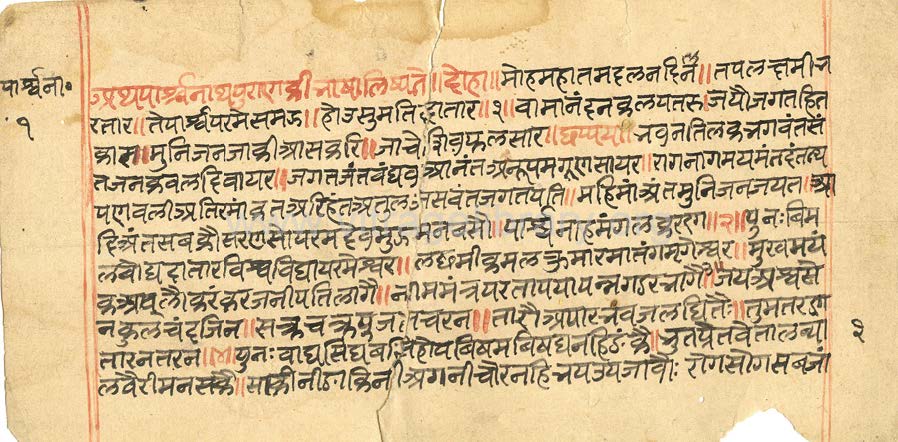 पार्श्वनी॰
१
अथपार्श्वनाथपुराणकीभाषालिष्यते॥दोहा॥मोहमहातमदलनदिन॥तपलछमीभ
रतार॥तेपार्श्वपरमेसमऊ॥होउसुमतिदातार॥१॥वामानंदनकलपतरु।जयौजगतहित
कार॥मुनिजनजाकीआसकरि॥जाचेशिवफलसार॥छप्पय॥भवनतिलकभगवंतसं
तजनकवलदिवायर॥जगतजंतवंधव आनंतअनूपमगुणसायर॥रागनागमयमंतदंतउथ
पणवलीअतिरमांकतअरिहंतअतुल सवंतजगतपति॥महिमांअंतमुनिजनजयत॥आ
दिअंतसबकौसरणसोयरमदेवमुऊमनवसौ॥पार्श्वनाहमंगलकरण॥२॥पुनः बिम
लबोधदातारविश्वविद्यायरमेश्वर॥लछमीकमलकुमारमातंगमृगेन्श्वर॥मुखमयं
कअवलौकरंकरजनीपतिलागै॥नाममंत्रपरतापपापन्नगडरभागै॥जयअश्वसे
नकुलचंदजिन॥सक्रचक्रपुजतचरन॥तारौअपारभवजलधितै॥तुमतरण
तारनतरन॥ पुनः वाघसिंघबसिहोयबिषमबिषधनहिडंकै॥भुतप्रेतवेतालव्या
लवैरीमनसंकै॥साकीनीडाकिनीअगनीचौरनहिभयउपजावौः रोगसोगसबजां
३